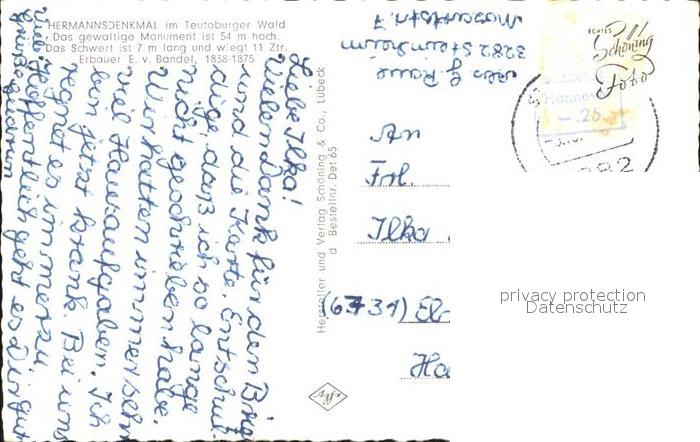 HERMANNSDENKMAL im Teutoburger Wald
Das gewaltige Monument ist 54 m hoch.
Das Schwert ist 7 m lang und wiegt 11 Ztr.
Erbauer E. v. Bandel, 1838-1875
Liebe Ilka!
Vielen Dank für den Brief
und die Karte. Entschul-
dige, daß ich so lange
nicht geschrieben habe.
Wir hatten immer sehr
viel Hausaufgaben. Ich
bin jetzt krank. Bei uns
regnet es immerzu.
Hoffentlich geht es Dir gut
Viele
Hersteller und Verlag Schöning & Co., Lübeck
Bestellnr. Det 65
3282 Steinheim
Mozartstr. 7
ECHTES
Schöning
Foto
Hannover
-.25
An
Frl.
Ilka
(6731)
Agfa
privacy protection
Datenschutz